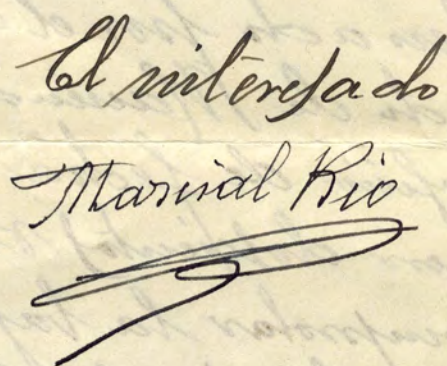 El interesado
Marisal Rio